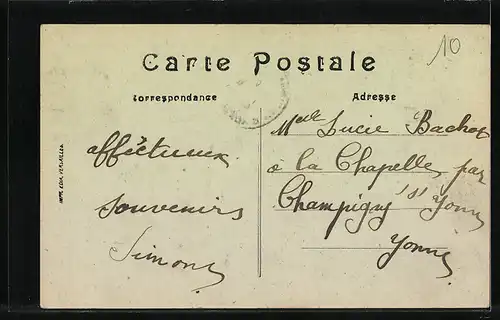 10
Carte Postale
Correspondance
Adresse
Melle Lucie Bachot
à la Chapelle par
Champigny s/ Yonne
Yonne
affectueux
souvenirs
Simone